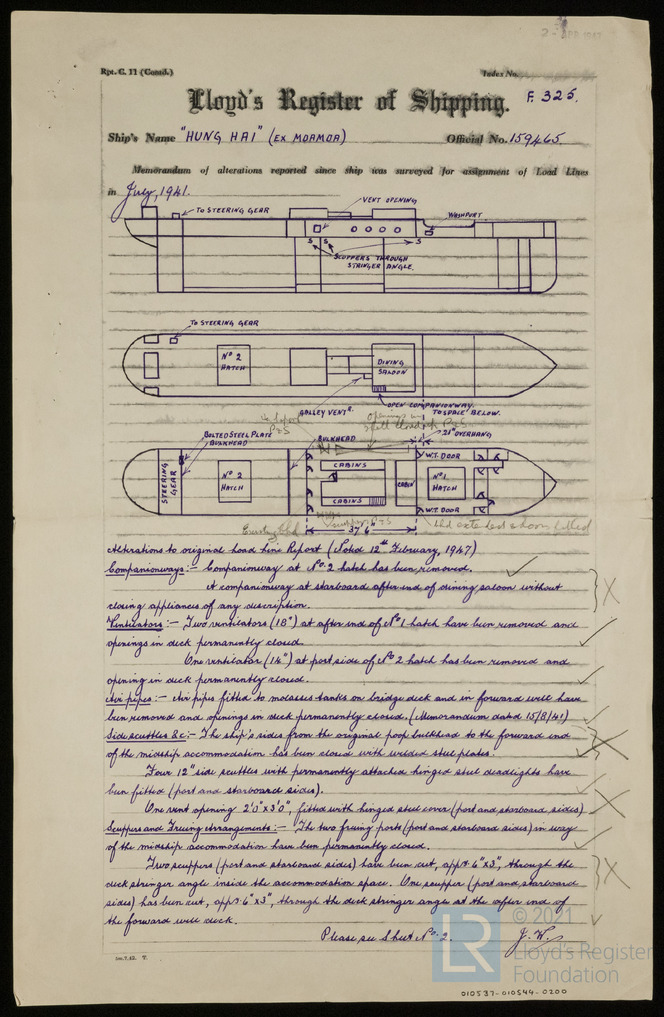 2 - APR 1947
Rpt. C. 11 (Contd.)
Index No.
Lloyd's Register of Shipping.
F. 325.
Ship's Name "HUNG HAI" (EX MOAMOA)
Official No. 159465.
Memorandum of alterations reported since ship was surveyed for assignment of Load Lines
in July, 1941.
VENT OPENING
TO STEERING GEAR
WASHPORT
S S S
SCUPPERS THROUGH
STRINGER ANGLE.
TO STEERING GEAR
No 2
HATCH
DINING
SALOON
GALLEY VENTR.
OPEN COMPANIONWAY
TO SPACE BELOW.
P & S
BOLTED STEEL PLATE
BULKHEAD
BULKHEAD
21" OVERHANG
W.T. DOOR
STEERING
GEAR
No 2
HATCH
CABINS
CABINS
CABIN
No 1
HATCH
W.T. DOOR
37'6"
Alterations to original Load Line Report (Dated 12th February, 1947)
Companionways:- Companionway at No. 2 hatch has been removed.
A companionway at starboard after end of dining saloon without
closing appliances of any description.
Ventilators:- Two ventilators (18") at after end of No 1 hatch have been removed and
openings in deck permanently closed.
One ventilator (14") at port side of No 2 hatch has been removed and
opening in deck permanently closed.
Air pipes:- Air pipes fitted to molasses tanks on bridge deck and in forward well have
been removed and openings in deck permanently closed. (Memorandum dated 15/8/41)
Side scuttles &c:- The ship's sides from the original poop bulkhead to the forward end
of the midship accommodation has been closed with welded steel plates.
Four 12" side scuttles with permanently attached hinged steel deadlights have
been fitted (port and starboard sides).
One vent opening 2'0" x 3'0", fitted with hinged steel cover (port and starboard sides)
Scuppers and Freeing Arrangements:- The two freeing ports (port and starboard sides) in way
of the midship accommodation have been permanently closed.
Two scuppers (port and starboard sides) have been cut, appx 6" x 3", through the
deck stringer angle inside the accommodation space. One scupper (port and starboard
sides) has been cut, appx 6" x 3", through the deck stringer angle at the after end of
the forward well deck.
Please see Sheet No. 2.
J. W.
© 2021
LR
Lloyd's Register
Foundation
010537-010544-0200